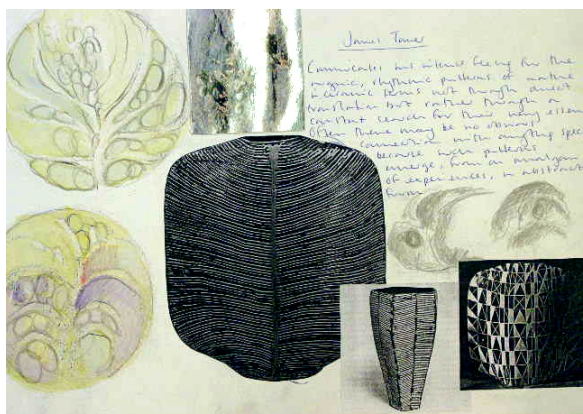 James Tower
Communicates his intense feeling for the
organic, rhythmic patterns of nature
in ceramic terms not through direct
translation but rather through a
constant search for their very essence
Often there may be no obvious
connection with anything spec
because such patterns
emerge, from an amalgam
of experiences, in abstract
form